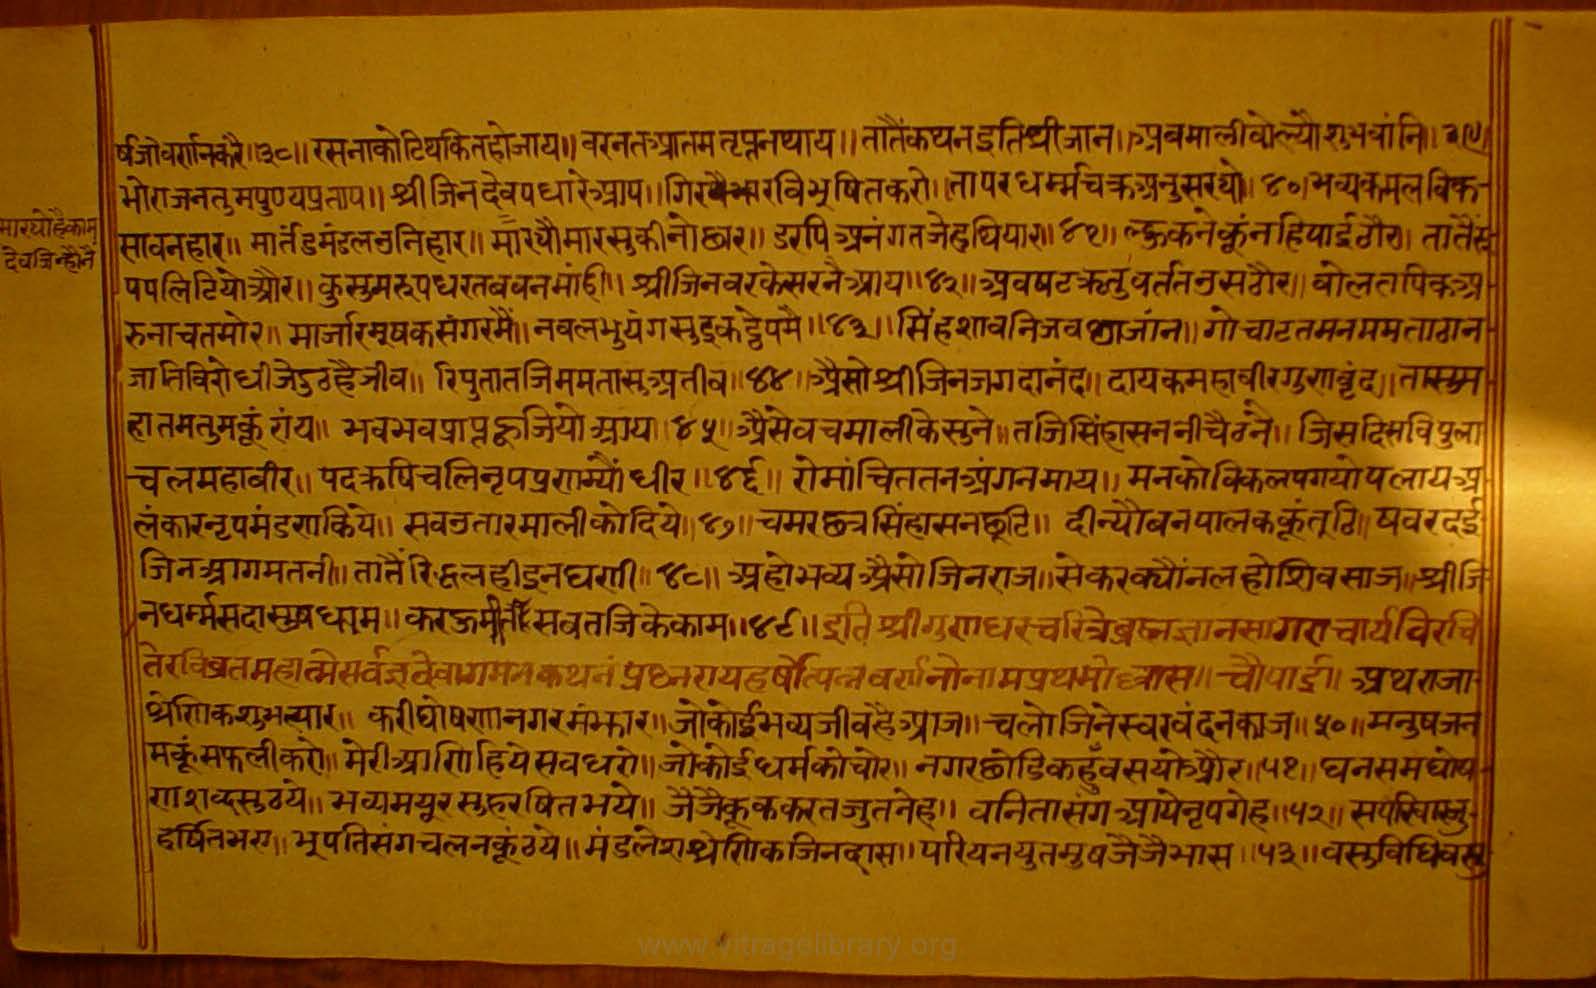 र्षजोवरणनकरै॥३८॥ रसनाकोटिथकितहोजाय॥ वरनतआतमतृप्तनथाय॥ तातैंकथनइतिश्रीजान॥ अवमालीवोल्यौशुभवांनि॥३९॥
भोराजनतुमपुण्यप्रताप॥ श्रीजिनदेवपधारेआप॥ गिरवैभारविभूषितकरो॥ तापरधर्म्मचक्रअनुसरयो॥४०॥ भव्यकमलविक-
मारयोहैकाम
देवजिन्होंनें
सावनहार॥ मार्तंडमंडलउनिहार॥ मारयौमारसुकीनोछार॥ डरपिअनंगतजेहथियार॥४१॥ लुककनेकूंनहिपाईठौर॥ तातैंसु
पपलिटियोऔर॥ कुसुमरूपधरतववनमांही॥ श्रीजिनवरकेसरनैआय॥४२॥ अवषटऋतुवर्ततउसठौर॥ वोलतपिकअ-
रुनाचतमोर॥ मार्जारमूषकसंगरमैं॥ नवलभुयंगसुइकठेपमै॥४३॥ सिंहशावनिजवछाजांन॥ गोचाटतमनममताठान
जातिविरोधीजेउठहैजीव॥ रिपुतातजिममतासुअतीव॥४४॥ अैसोश्रीजिनजगदानंद॥ दायकमहावीरगुणवृंद॥ तासुम
हातमतुमकूं रांय॥ भवभवप्राप्तहूजियोआय॥४५॥ अैसेवचमालीकेसुने॥ तजिसिंहासननीचैठने॥ जिसदिसविपुला
चलमहावीर॥ पदऋषिचलिनृपप्रणम्यौंधीर॥४६॥ रोमांचिततनअंगनमाय॥ मनकोविकलपगयोपलायअ-
लंकारनृपमंडणकिये॥ सवउतारमालीकोदिये॥४७॥ चमरछत्रसिंहासनछूटि॥ दीन्यौवनपालककूंतूठि॥ षवरदई
जिनआगमतनी॥ तातैंरिद्धलहीइनघणी॥४८॥ अहोभव्यअैसोजिनराज॥ सेकरक्यौंनलहोशिवसाज॥ श्रीजि
नधर्म्मसदासुषधाम॥ करऊमीतीसवतजिकेकाम॥४९॥ इतिश्रीगुणधरचरित्रेब्रह्मज्ञानसागराचार्यविरचि
तेरविव्रतमहात्मेसर्वज्ञदेवागमनकथनंप्रछनरायहर्षोत्पन्नवर्णनोनामप्रथमोध्यास॥ चौपाई॥ अथराजा-
श्रेणिकशुभत्यार॥ करीघोषणानगरमंझार॥ जोकोईभव्यजीवहैआज॥ चलोजिनेस्वरवंदनकाज॥५०॥ मनुषजन
मकूंसफलीकरो॥ मेरीआणिहियेसवधरो॥ जोकोईधर्मकोचोर॥ नगरछोडिकहुँवसयोऔर॥५१॥ घनसमघोष-
णाशब्दसुठये॥ भव्यमयूरसुहरषितभये॥ जैजैकूककरतजुतनेह॥ वनितासंगआयेनृपगेह॥५२॥
हर्षितभए॥ भूपतिसंगचलनकूंठये॥ मंडलेशश्रेणिकजिनदास॥ परियनयुतमुषजैजैभास॥५३॥ वसुविधिवसु
www.vitragelibrary.org